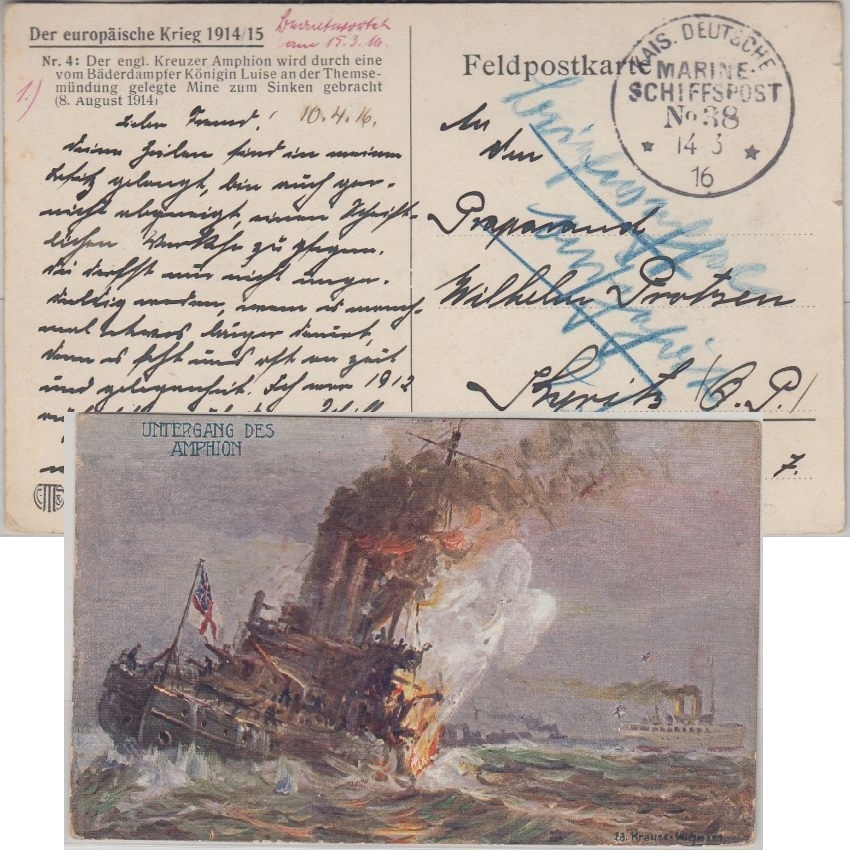 Der europäische Krieg 1914/15
Beantwortet
am 15.3.16.
Nr. 4: Der engl. Kreuzer Amphion wird durch eine
vom Bäderdampfer Königin Luise an der Themse-
mündung gelegte Mine zum Sinken gebracht
(8. August 1914)
1.)
Lieber Freund! 10.4.16.
deine Zeilen sind in meinen
Besitz gelangt, bin auch gar-
nicht abgeneigt, einen Schrift-
lichen Verkehr zu pflegen.
Du darfst nur nicht unge-
duldig werden, wenn es manch-
mal etwas länger dauert,
denn es fehlt uns oft an Zeit
und Gelegenheit. Ich war 1912
Feldpostkarte
KAIS. DEUTSCHE
MARINE-
SCHIFFSPOST
No 38
* 14 3 *
16
An
den
Präparand
Wilhelm Protzen
Kyritz (O.P.)
7.
UNTERGANG DES
AMPHION
Ed. Krause-Wichmann